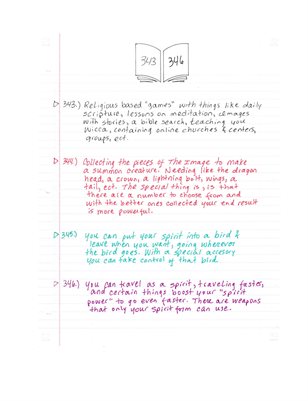 343 346
▷ 343.) Religious based "games" with things like daily
scripture, lessons on meditation, images
with stories, a bible search, teaching you
wicca, containing online churches & centers,
groups, ect.
▷ 344.) Collecting the pieces of The Image to make
a summon creature. Needing like the dragon
head, a crown, a lightning bolt, wings, a
tail, ect. The special thing is, is that
there are a number to choose from and
with the better ones collected your end result
is more powerful.
▷ 345.) You can put your spirit into a bird &
leave when you want, going wherever
the bird goes. With a special accessory
you can take control of that bird.
▷ 346.) You can travel as a spirit, traveling faster,
and certain things boost your "spirit
power" to go even faster. There are weapons
that only your spirit form can use.